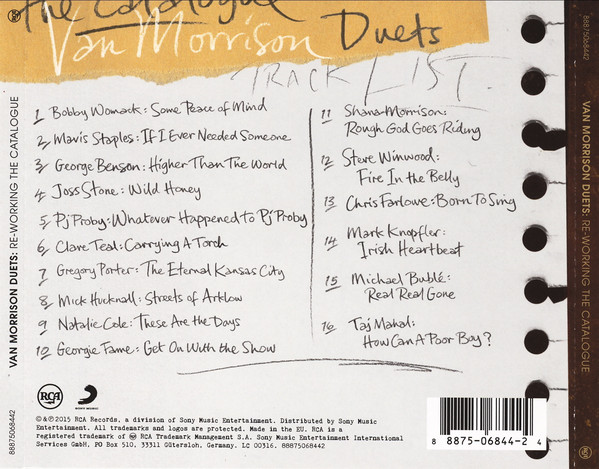 the Catalogue
Van Morrison Duets
TRACK LIST.
1 Bobby Womack: Some Peace of Mind
2 Mavis Staples: If I Ever Needed Someone
3 George Benson: Higher Than The World
4 Joss Stone: Wild Honey
5 PJ Proby: Whatever Happened to PJ Proby
6 Clare Teal: Carrying A Torch
7 Gregory Porter: The Eternal Kansas City
8 Mick Hucknall: Streets of Arklow
9 Natalie Cole: These Are the Days
10 Georgie Fame: Get On With the Show
11 Shana Morrison:
Rough God Goes Riding
12 Steve Winwood:
Fire In the Belly
13 Chris Farlowe: Born To Sing
14 Mark Knopfler:
Irish Heartbeat
15 Michael Bublé:
Real Real Gone
16 Taj Mahal:
How Can A Poor Boy?
RCA
SONY MUSIC
©&℗2015 RCA Records, a division of Sony Music Entertainment. Distributed by Sony Music
Entertainment. All trademarks and logos are protected. Made in the EU. RCA is a
registered trademark of RCA Trademark Management S.A. Sony Music Entertainment International
Services GmbH, PO Box 510, 33311 Gütersloh, Germany. LC 00316. 88875068442
8 88875-06844-2 4
VAN MORRISON DUETS: RE-WORKING THE CATALOGUE
88875068442
88875068442
VAN MORRISON DUETS: RE-WORKING THE CATALOGUE